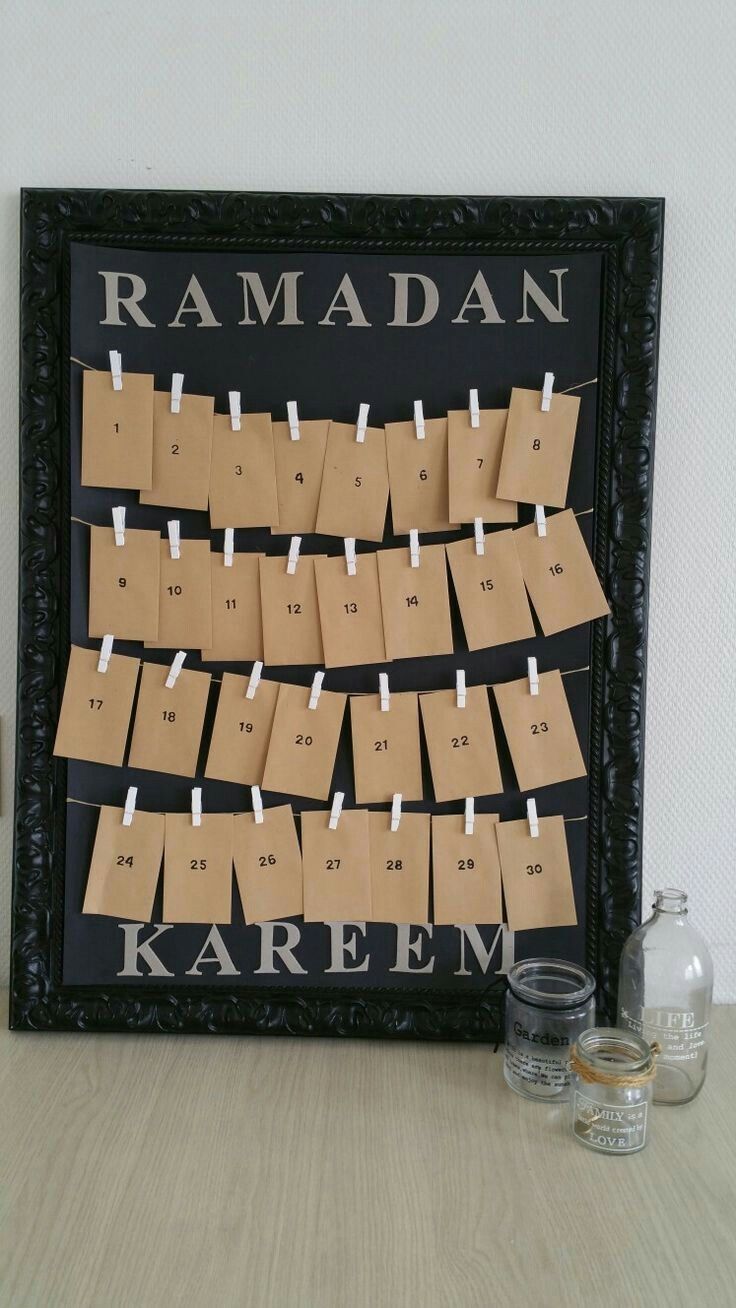 RAMADAN
1 2 3 4 5 6 7 8
9 10 11 12 13 14 15 16
17 18 19 20 21 22 23
24 25 26 27 28 29 30
KAREEM
LIFE
Living the life
Garden
and enjoy the
FAMILY is a
world created by
LOVE